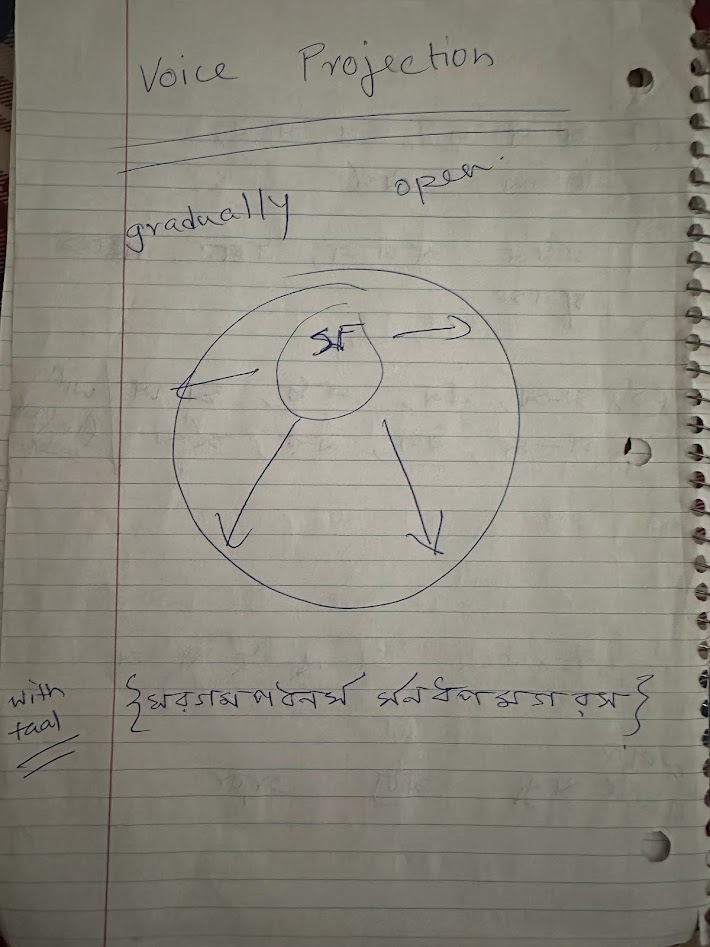 Voice Projection
gradually open.
with
taal
{সরগমপধনর্স র্সনধপমগরস}